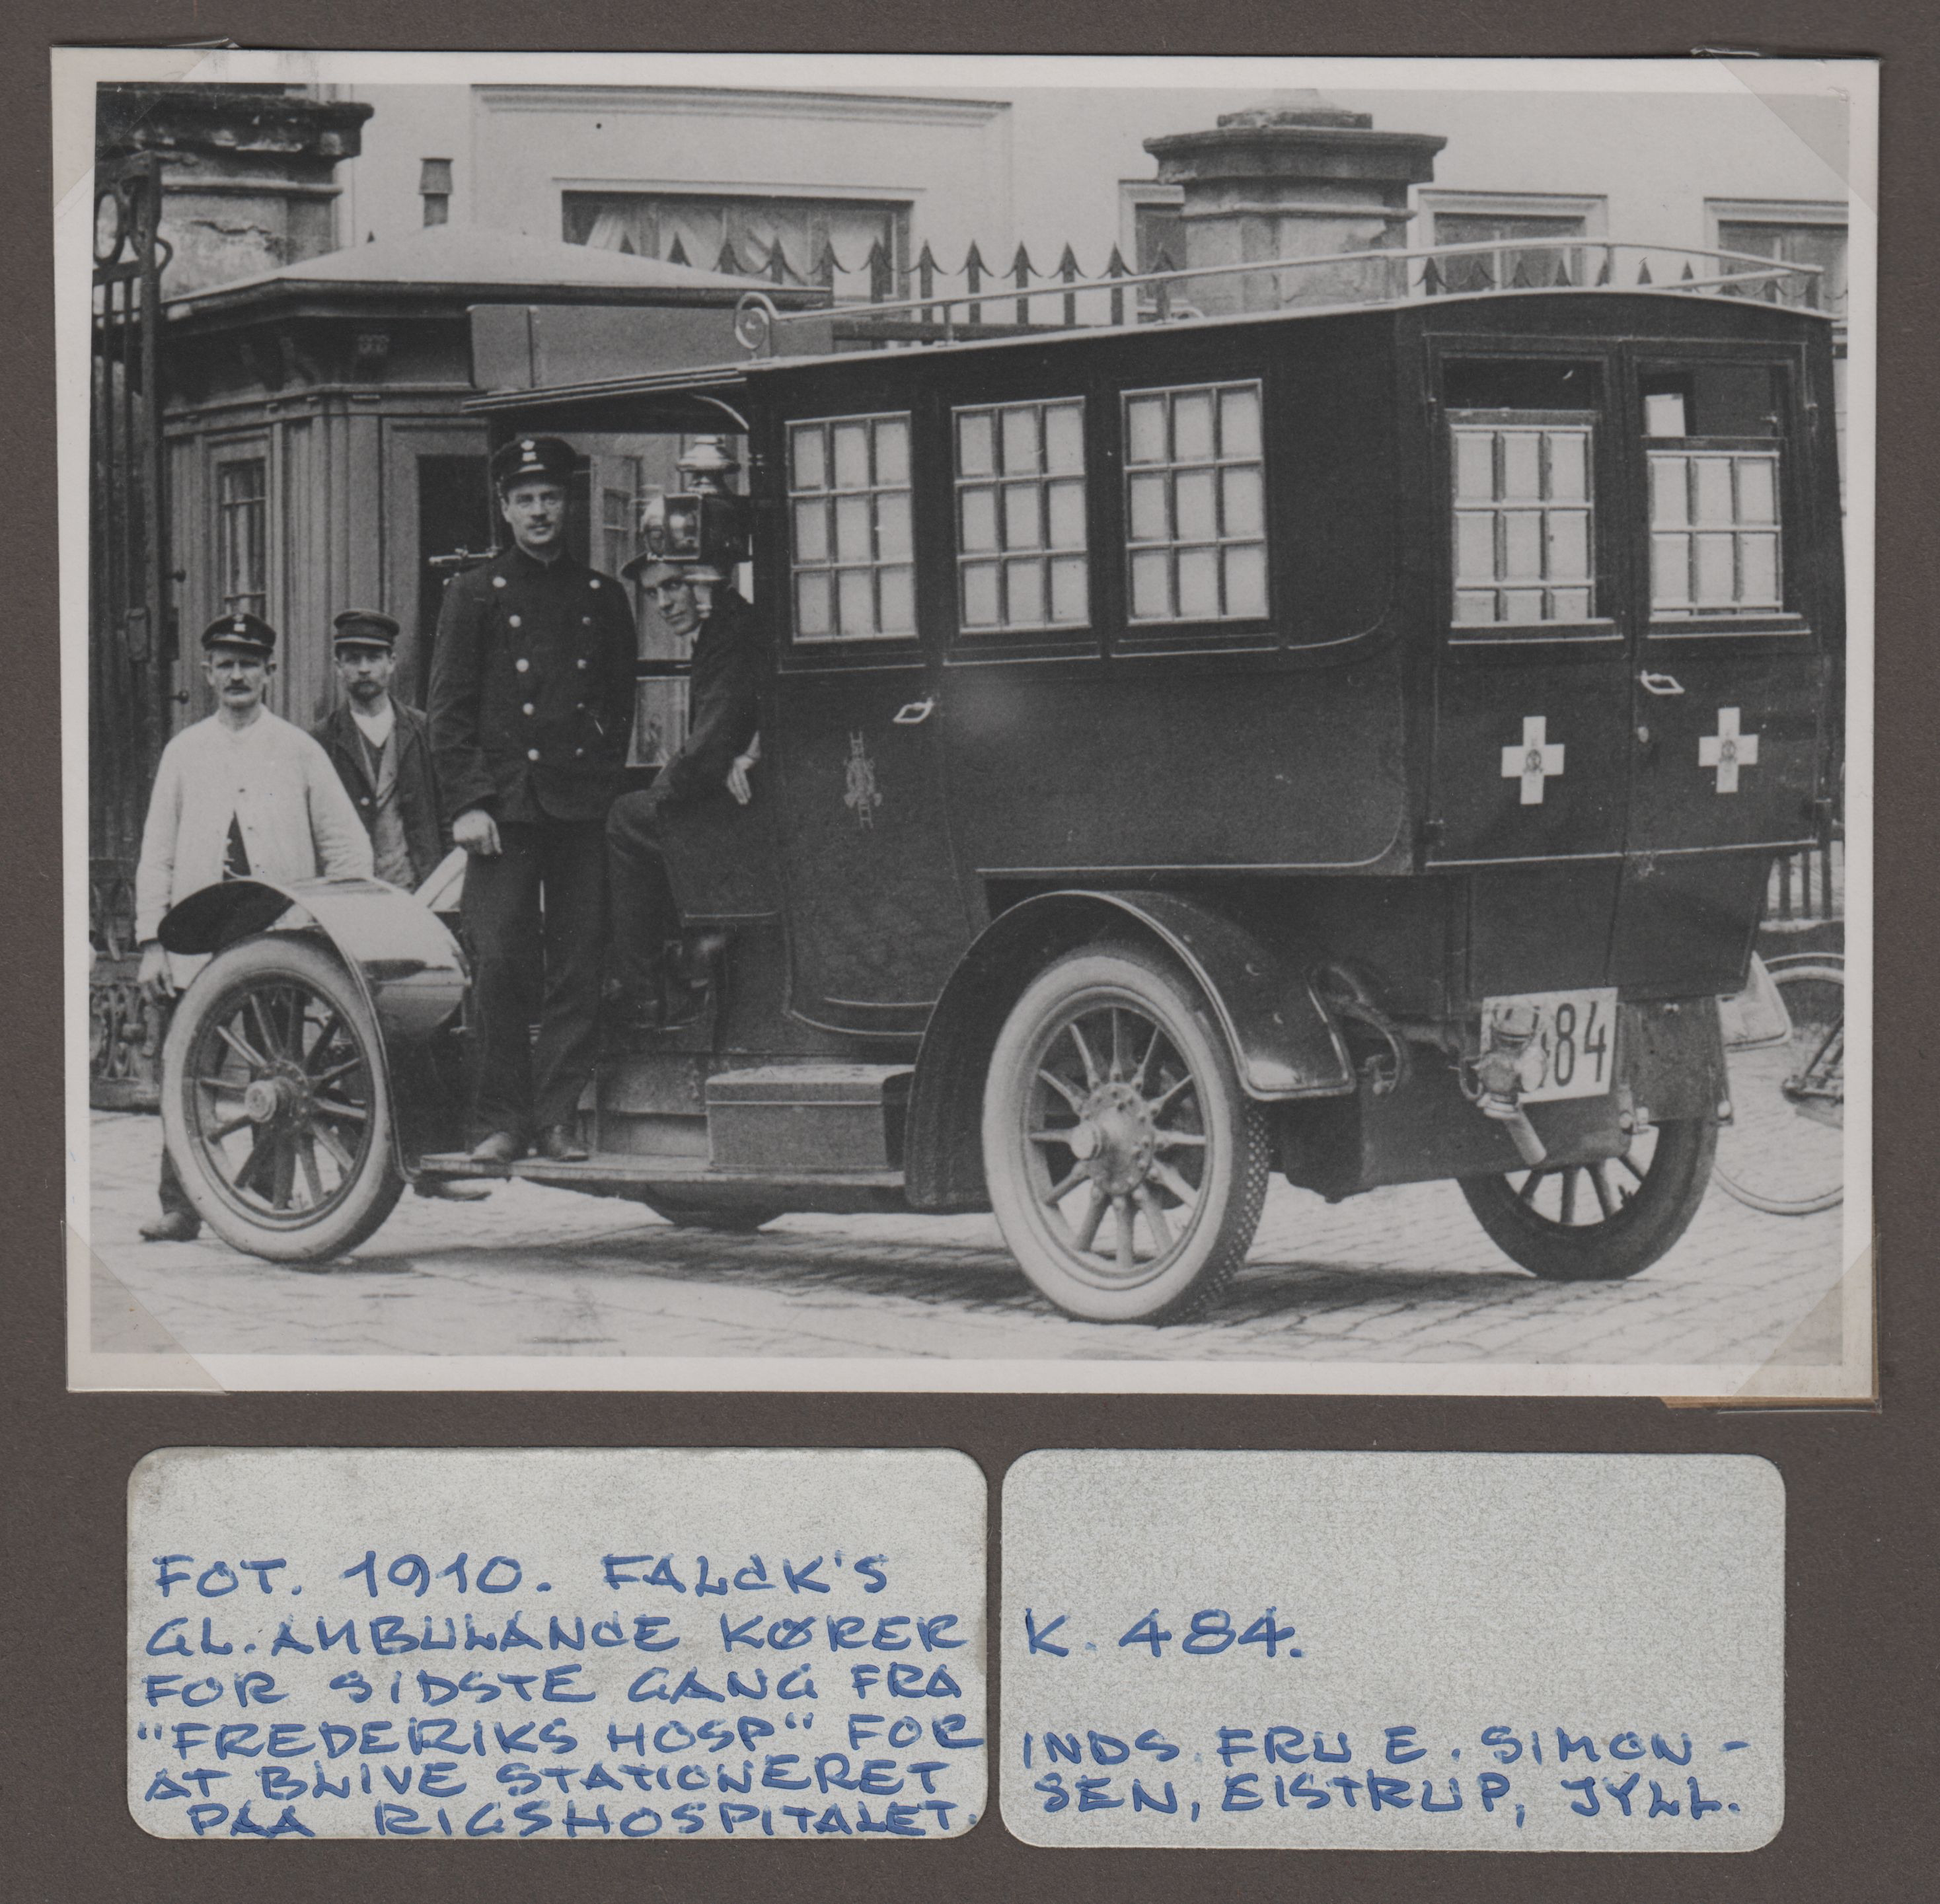 84
FOT. 1910. FALCK'S
GL. AMBULANCE KØRER
FOR SIDSTE GANG FRA
"FREDERIKS HOSP" FOR
AT BLIVE STATIONERET
PAA RIGSHOSPITALET.
K. 484.
INDS. FRU E. SIMON-
SEN, EISTRUP, JYLL.